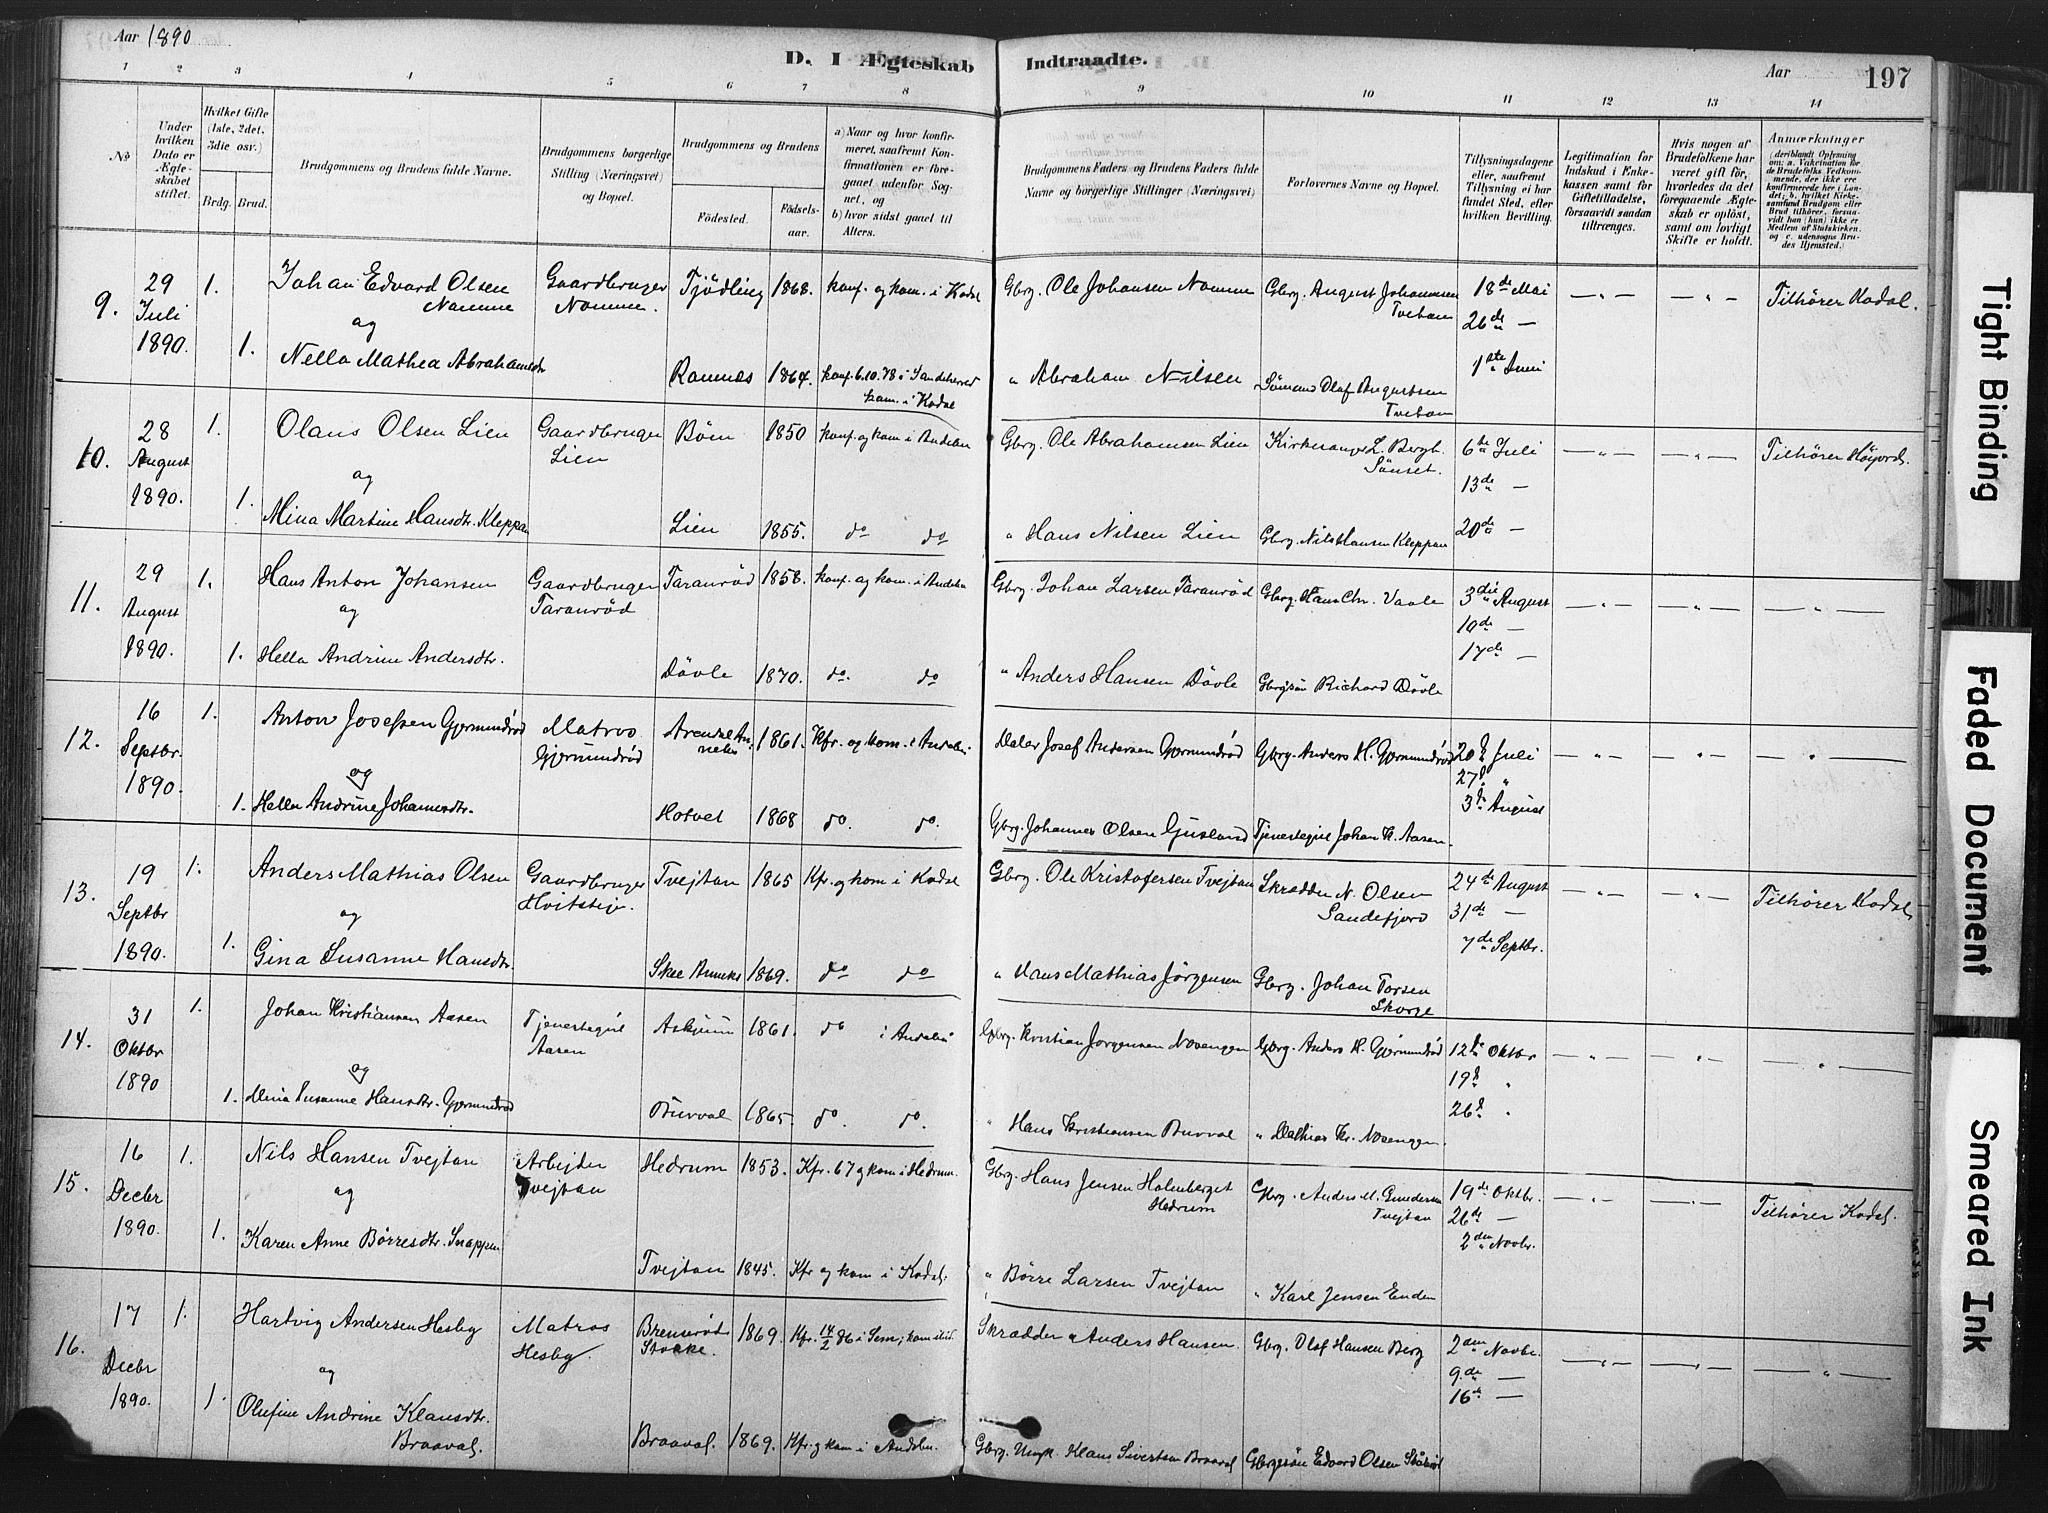 Aar 1890
D. I Ægteskab Indtraadte.
Aar 197
1 2 3 4 5 6 7 8 8 9 10 11 12 13 14
No
Under hvilken Dato er Ægteskabet stiftet.
Hvilket Gifte (1ste, 2det, 3die osv.)
Brdg. Brud.
Brudgommens og Brudens fulde Navne.
Brudgommens borgerlige Stilling (Næringsvei) og Bopæl.
Brudgommens og Brudens
Fødested. Fødselsaar.
a) Naar og hvor konfirmeret, saafremt Konfirmationen er foregaaet udenfor Sognet, og
b) hvor sidst gaaet til Alters.
Brudgommens Faders og Brudens Faders fulde Navne og borgerlige Stillinger (Næringsvei)
Forlovernes Navne og Bopæl.
Tillysningsdagene eller, saafremt Tillysning ei har fundet Sted, efter hvilken Bevilling.
Legitimation for Indskud i Enkekassen samt for Giftetilladelse, forsaavidt saadan tiltrænges.
Hvis nogen af Brudefolkene har været gift før, hvorledes da det foregaaende Ægteskab er opløst, samt om lovligt Skifte er holdt.
Anmærkninger
(deriblandt Oplysning om: a. Vakcination for de Brudefolks Vedkommende, der ikke ere konfirmerede her i Landet; b. hvilket Kirkesamfund Brudgom eller Brud tilhører, forsaavidt han (hun) ikke er Medlem af Statskirken, og c. udensogns Brudes Hjemsted.)
9. 29 Juli 1890. 1. Johan Edvard Olsen Namme Gaardbruger Namme. Tjödling 1868. konf. og kom. i Kodal Gbrg. Ole Johansen Namme Gbrg. August Johannssen Tvetan 18de Mai — " — — " — Tilhører Kodal.
og 26de —
1. Nella Mathea Abrahamsdtr Ramnes 1864. konf. 6.10.78 i Sandeherred kom. i Kodal " Abraham Nilsen Sömand Olaf Augustsen Tvetan 1ste Juni
10. 28 August 1890. 1. Olaus Olsen Lien Gaardbruger Lien Böen 1850 konf. og kom i Andebu Gbrg. Ole Abrahamsen Lien Kirkesanger L. Bergh. Sönset. 6te Juli — " — — " — Tilhører Höijord.
og 13de —
1. Mina Martine Hansdtr. Kleppan Lien 1855. do do " Hans Nilsen Lien Gbrg. Nils Hansen Kleppan 20de —
11. 29 August 1890. 1. Hans Anton Johansen Gaardbruger Taranröd Taranröd 1858. konf. og kom. i Andebu Gbrg. Johan Larsen Taranröd Gbrg. Hans Chr. Vaale 3die August — " — — " — — " —
og 10de —
1. Hella Andrine Andersdtr. Dövle 1870. do. do " Anders Hansen Dövle Gbrgsön Richard Dövle 17de —
12. 16 Septbr. 1890. 1. Anton Josefsen Gjermundröd Matros Gjermundröd 1861. Kfr. og kom. i Andebu Maler Josef Andersen Gjermundröd Gbrg. Anders H. Gjermundröd 20de Juli — " — — " — — " —
og 27de "
1. Hella Andrine Johannesdtr. Hotvet 1868 do. do. Gbrg. Johannes Olsen Gusland Tjenestegut Johan K. Aasen. 3die August
13. 19 Septbr 1890. 1. Anders Mathias Olsen Gaardbruger Hvitstein. Tvejtan 1865 Kfr. og kom i Kodal Gbrg. Ole Kristofersen Tvejtan Skrædder N. Olsen Sandefjord 24de August — " — — " — Tilhører Kodal
og 31de —
1. Gina Susanne Hansdtr. Skee 1869. do do " Hans Mathias Jörgensen Gbrg. Johan Torsen Skorge 7de Septbr.
14. 31 Oktbr 1890 1. Johan Kristiansen Aasen Tjenestegut Aasen Askjum 1861. do i Andebu Gbrg. Kristian Jörgensen Nosengen Gbrg. Anders H. Gjermundröd 12te Oktbr — " — — " — — " —
og 19de "
1. Mina Susanne Hansdtr. Gjermundröd Burval 1865. do. do. " Hans Kristiansen Burval " Mathias Kr. Nosengen. 26de "
15. 16 Decbr 1890. 1. Nils Hansen Tvejtan Arbejder Tvejtan Hedrum 1853. Kfr. 67 og kom i Hedrum. Gbrg. Hans Jensen Holmberget Hedrum Gbrg. Anders M. Tvejtan 19de Oktbr. — " — — " — Tilhører Kodal.
og 26de —
1. Karen Anne Börresdtr. Snappen Tvejtan 1845. Kfr og kom i Kodal. " Börre Larsen Tvejtan " Karl Jensen Enden 2den Novbr.
16. 17 Decbr 1890. 1. Hartvig Andersen Hesby Matros Hesby Bremeröd Stokke. 1869. Kfr. 14/2 86 i Sem; kom ibid. Skrædder " Anders Hansen. Gbrg. Olaf Hansen Berg 2den Novbr. — " — — " — — " —
og 9de —
1. Olufine Andrine Klausdtr. Braaval. Braaval. 1869. Kfr. og kom i Andebu. Gbrg. Klaus Sivertsen Braaval Gbrgesön Edvard Olsen 16de —
Tight Binding
Faded Document
Smeared Ink